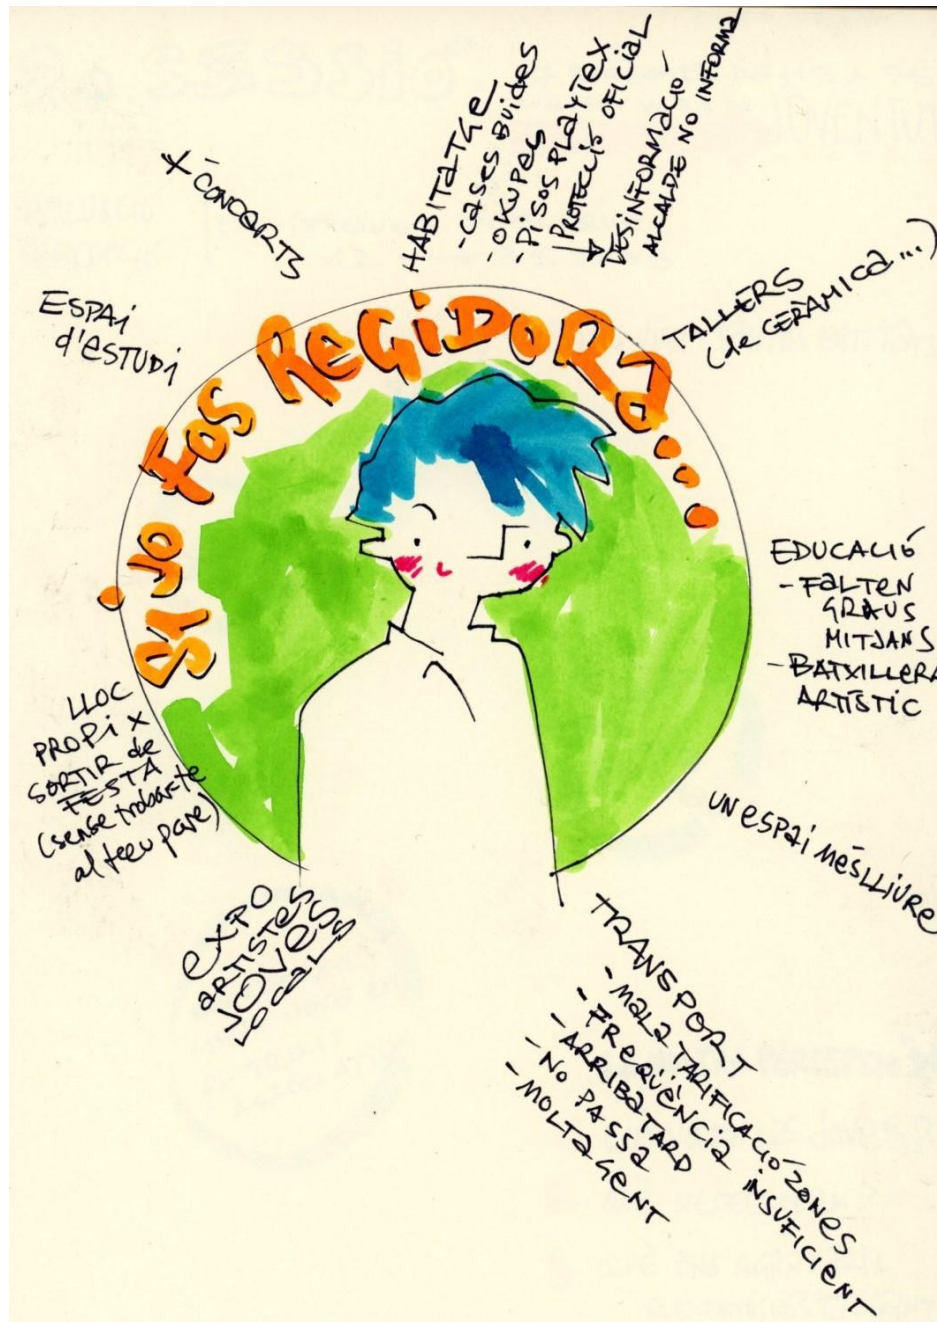 Si jo FOS REGIDORA...
+ CONCERTS
ESPAI
d'ESTUDI
HABITATGE
- CASES BUIDES
- OKUPES
- PISOS PLAYTEX
PROTECCIÓ OFICIAL
DESINFORMACIÓ
ALCALDE NO INFORMA
TALLERS
(de CERÀMICA...)
EDUCACIÓ
- FALTEN
GRAUS
MITJANS
- BATXILLERA
ARTÍSTIC
UN ESPAI MÉS LLIURE
TRANSPORT
- MALA TARIFICACIÓ ZONES
- FREQÜÈNCIA INSUFICIENT
- ARRIBA TARD
- NO PASSA
- MOLTA GENT
EXPO
ARTISTES
JOVES
LOCALS
LLOC
PROPI X
SORTIR de
FESTA
(sense trobar-te
al teu pare)